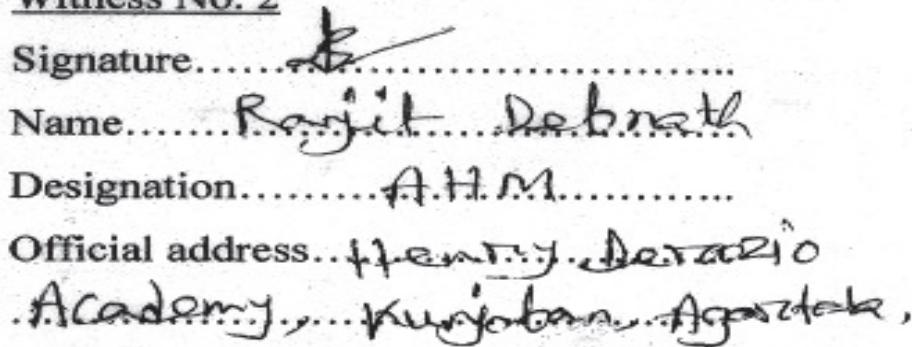 Witness No. 2
Signature
Name Ranjit Debnath
Designation A.H.M
Official address Henry Derozio
Academy, Kunjaban, Agartala,